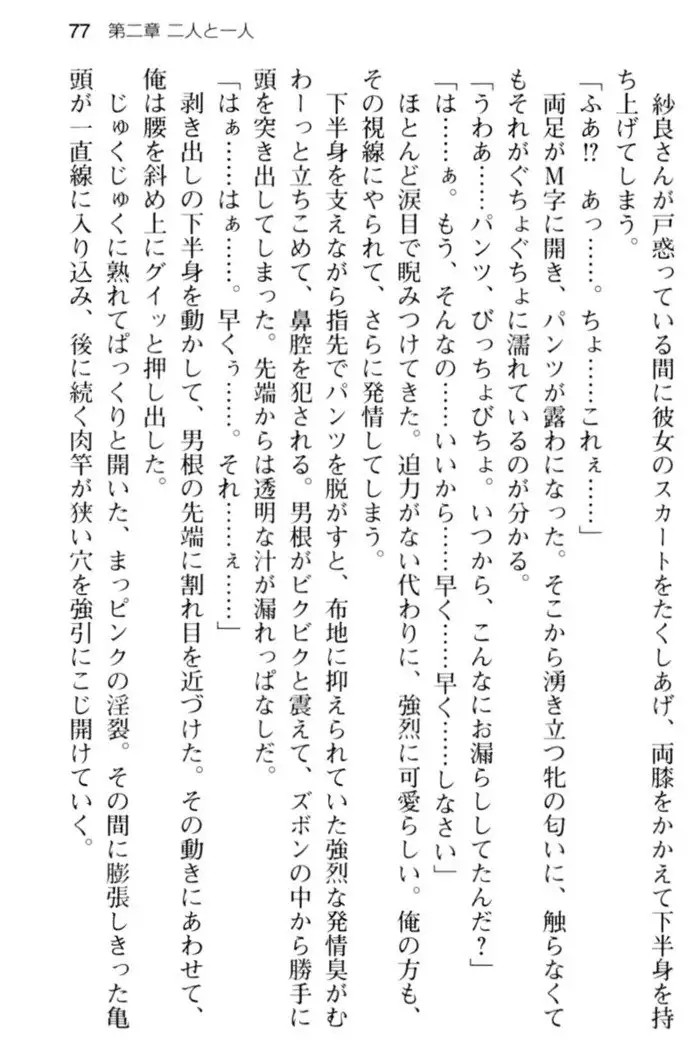 77 第二章 二人と一人
紗良さんが戸惑っている間に彼女のスカートをたくしあげ、両膝をかかえて下半身を持
ち上げてしまう。
「ふあ!? あっ……。ちょ……これぇ……」
両足がM字に開き、パンツが露わになった。そこから湧き立つ牝の匂いに、触らなくて
もそれがぐちょぐちょに濡れているのが分かる。
「うわぁ……パンツ、びっちょびちょ。いつから、こんなにお漏らししてたんだ?」
「は……ぁ。もう、そんなの……いいから……早く……早く……しなさい」
ほとんど涙目で睨みつけてきた。迫力がない代わりに、強烈に可愛らしい。俺の方も、
その視線にやられて、さらに発情してしまう。
下半身を支えながら指先でパンツを脱がすと、布地に抑えられていた強烈な発情臭がむ
わーっと立ちこめて、鼻腔を犯される。男根がビクビクと震えて、ズボンの中から勝手に
頭を突き出してしまった。先端からは透明な汁が漏れっぱなしだ。
「はぁ……はぁ……。早くぅ……。それ……ぇ……」
剥き出しの下半身を動かして、男根の先端に割れ目を近づけた。その動きにあわせて、
俺は腰を斜め上にグイッと押し出した。
じゅくじゅくに熟れてぱっくりと開いた、まっピンクの淫裂。その間に膨張しきった亀
頭が一直線に入り込み、後に続く肉竿が狭い穴を強引にこじ開けていく。